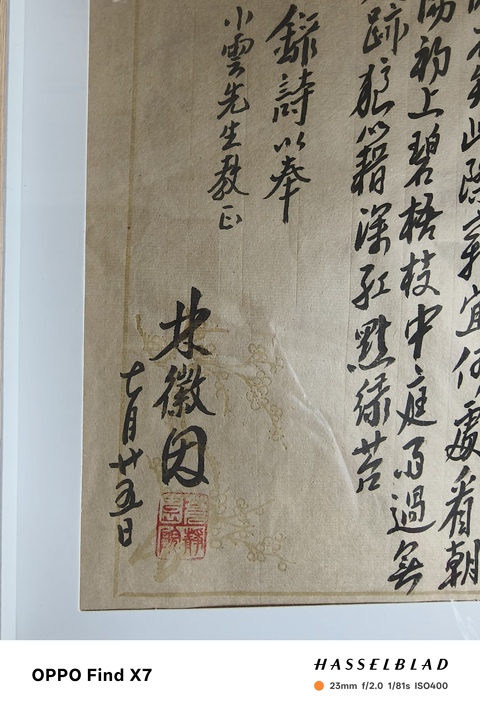 此際最宜何處看朝
陽初上碧梧枝中庭雨過無
跡狼藉深紅點綠苔
錄詩以奉
小雲先生教正
林徽因
七月廿五日
OPPO Find X7
HASSELBLAD
23mm f/2.0 1/81s ISO400